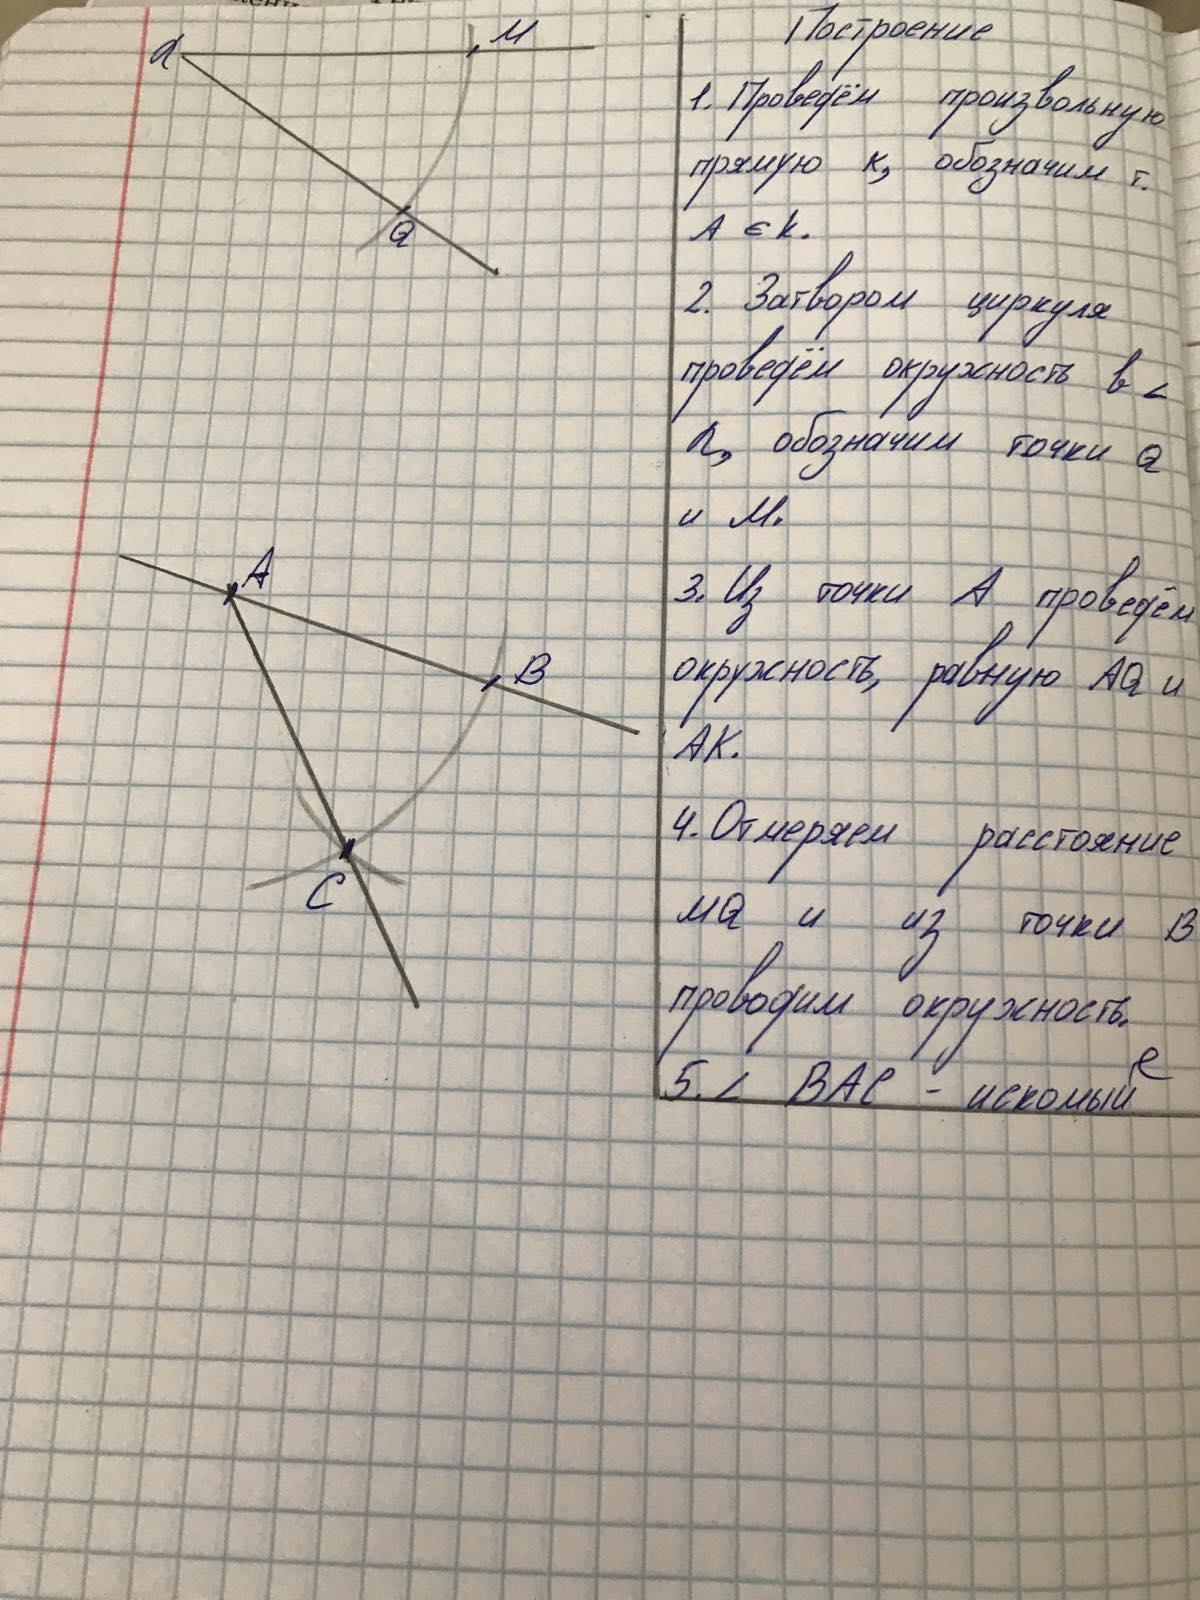 α
M
Q
A
B
C
Построение
1. Проведём произвольную
прямую к, обозначим т.
A ∈ k.
2. Затвором циркуля
проведём окружность в ∠
α, обозначим точки Q
и M.
3. Из точки A проведём
окружность, равную AQ и
AK.
4. Отмеряем расстояние
MQ и из точки B
проводим окружность.
5. ∠ BAC - искомый
е